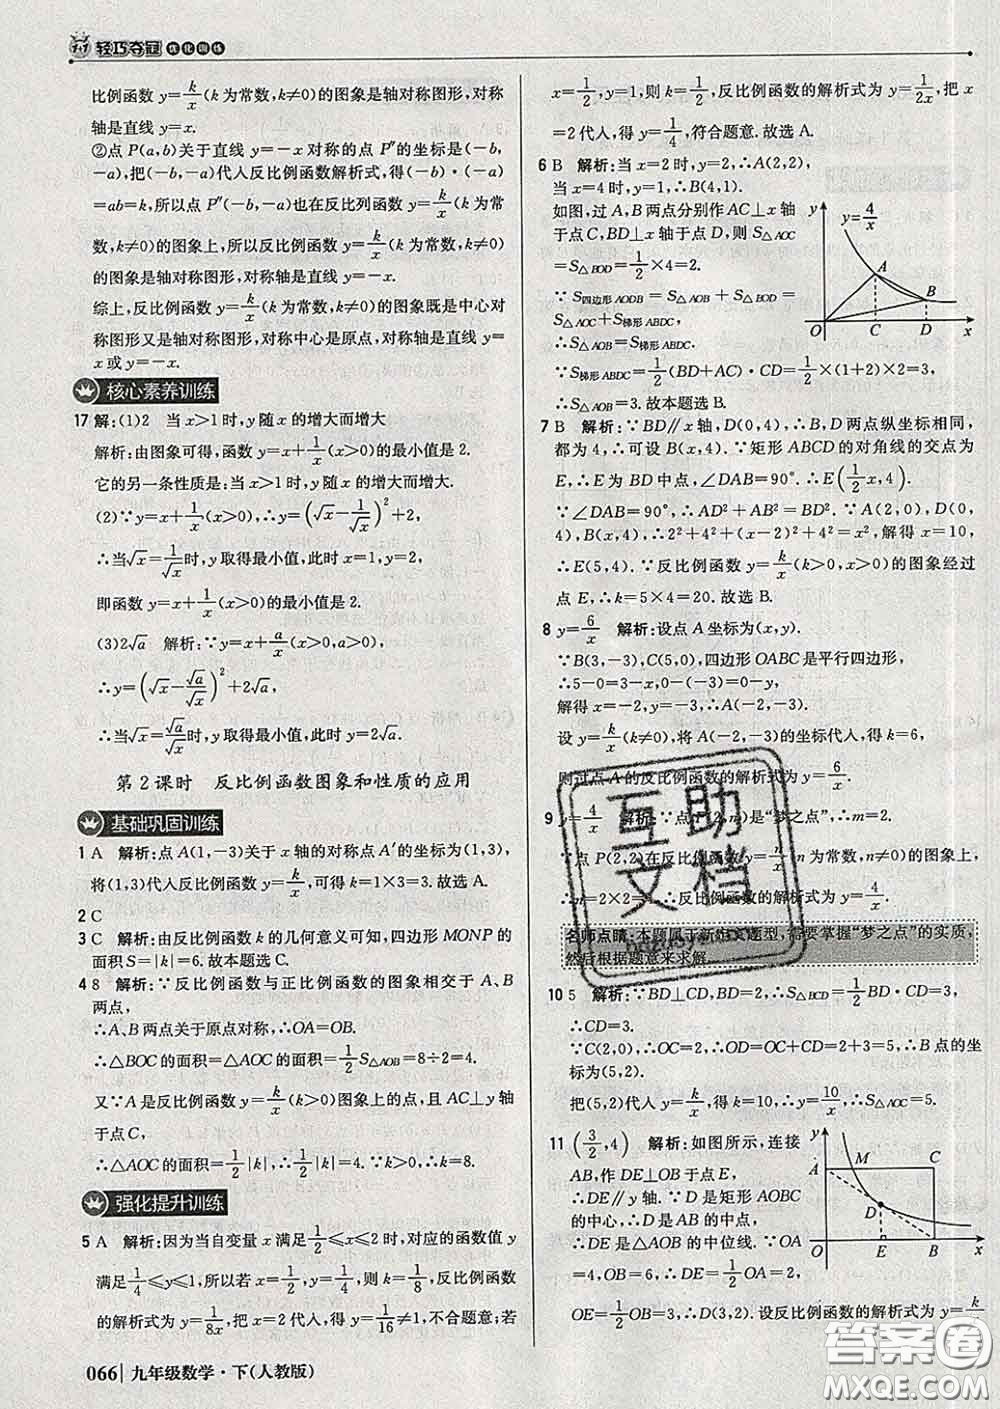 1+1 轻巧夺冠 优化训练
比例函数 y=k/x(k 为常数,k≠0)的图象是轴对称图形,对称
轴是直线 y=x.
②点 P(a,b)关于直线 y=-x 对称的点 P″的坐标是(-b,
-a),把(-b,-a)代人反比例函数解析式,得(-b)·(-a)
=ab=k,所以点 P″(-b,-a)也在反比列函数 y=k/x(k 为常
数,k≠0)的图象上,所以反比例函数 y=k/x(k 为常数,k≠0)
的图象是轴对称图形,对称轴是直线 y=-x.
综上,反比例函数 y=k/x(k 为常数,k≠0)的图象既是中心对
称图形又是轴对称图形,对称中心是原点,对称轴是直线 y=
x 或 y=-x.
核心素养训练
17 解:(1)2 当 x>1 时,y 随 x 的增大而增大
解析:由图象可得,函数 y=x+1/x(x>0)的最小值是 2.
它的另一条性质是:当 x>1 时,y 随 x 的增大而增大.
(2)∵y=x+1/x(x>0),∴y=(√x-1/√x)²+2,
∴当√x=1/√x时,y 取得最小值,此时 x=1,y=2,
即函数 y=x+1/x(x>0)的最小值是 2.
(3)2√a 解析:∵y=x+a/x(x>0,a>0),
∴y=(√x-√a/√x)²+2√a,
∴当√x=√a/√x时,y 取得最小值,此时 y=2√a.
第 2 课时 反比例函数图象和性质的应用
基础巩固训练
1 A 解析:点 A(1,-3)关于 x 轴的对称点 A′的坐标为(1,3),
将(1,3)代入反比例函数 y=k/x,可得 k=1×3=3.故选 A.
2 C
3 C 解析:由反比例函数 k 的几何意义可知,四边形 MONP 的
面积 S=|k|=6.故本题选 C.
4 8 解析:∵反比例函数与正比例函数的图象相交于 A、B
两点,
∴A、B 两点关于原点对称,∴OA=OB.
∴△BOC 的面积=△AOC 的面积=1/2 S△AOB=8÷2=4.
又∵A 是反比例函数 y=k/x(k>0)图象上的点,且 AC⊥y 轴
于点 C,
∴△AOC 的面积=1/2|k|,∴1/2|k|=4.∵k>0,∴k=8.
强化提升训练
5 A 解析:因为当自变量 x 满足1/2≤x≤2 时,对应的函数值 y
满足1/4≤y≤1,所以若 x=1/2,y=1/4,则 k=1/8,反比例函数
的解析式为 y=1/8x,把 x=2 代人,得 y=1/16≠1,不合题意;若
066 九年级数学·下(人教版)
x=1/2,y=1,则 k=1/2,反比例函数的解析式为 y=1/2x,把 x
=2 代人,得 y=1/4,符合题意.故选 A.
6 B 解析:当 x=2 时,y=2,∴A(2,2),
当 x=4 时,y=1,∴B(4,1).
如图,过 A,B 两点分别作 AC⊥x 轴
于点 C,BD⊥x 轴于点 D,则 S△AOC
=S△BOD=1/2×4=2.
∵S四边形AODB=S△AOB+S△BOD=
S△AOC+S梯形ABDC,
∴S△AOB=S梯形ABDC.
∵S梯形ABDC=1/2(BD+AC)·CD=1/2×(1+2)×2=3,
∴S△AOB=3.故本题选 B.
y=4/x
y
A
B
O C D x
7 B 解析:∵BD∥x 轴,D(0,4),∴B、D 两点纵坐标相同,
都为 4,∴可设 B(x,4).∵矩形 ABCD 的对角线的交点为
E,∴E 为 BD 中点,∠DAB=90°.∴E(1/2x,4).
∵∠DAB=90°,∴AD²+AB²=BD².∵A(2,0),D(0,
4),B(x,4),∴2²+4²+(x-2)²+4²=x²,解得 x=10,
∴E(5,4).∵反比例函数 y=k/x(k>0,x>0)的图象经过
点 E,∴k=5×4=20.故选 B.
8 y=6/x 解析:设点 A 坐标为(x,y).
∵B(3,-3),C(5,0),四边形 OABC 是平行四边形,
∴5-0=3-x,0-(-3)=0-y,
解得 x=-2,y=-3,∴A(-2,-3).
设 y=k/x(k≠0),将 A(-2,-3)的坐标代人,得 k=6,
则过点 A 的反比例函数的解析式为 y=6/x.
9 y=4/x 解析:∵点 P(2,m)是“梦之点”,
∵点 P(2,2)在反比例函数 y=n/x(n 为常数,n≠0)的图象上,
∴n=2×2=4,∴反比例函数的解析式为 y=4/x.
名师点睛:本题属于新定义题型,需要掌握“梦之点”的实质,
然后根据题意来求解.
10 5 解析:∵BD⊥CD,BD=2,∴S△BCD=1/2BD·CD=3,
∴CD=3.
∵C(2,0),∴OC=2,∴OD=OC+CD=2+3=5,∴B 点的坐
标为(5,2).
把(5,2)代人 y=k/x,得 k=10,∴y=10/x,∴S△AOC=5.
11 (3/2,4) 解析:如图所示,连接
AB,作 DE⊥OB 于点 E,
∴DE∥y 轴.∵D 是矩形 AOBC
的中心,∴D 是 AB 的中点,
∴DE 是△AOB 的中位线.∵OA
=4,OB=6,∴DE=1/2OA=2,
OE=1/2OB=3,∴D(3,2).设反比例函数的解析式为 y=k/x
y
A M C
D
O E B x
互助文档
答案圈
MXQE.COM